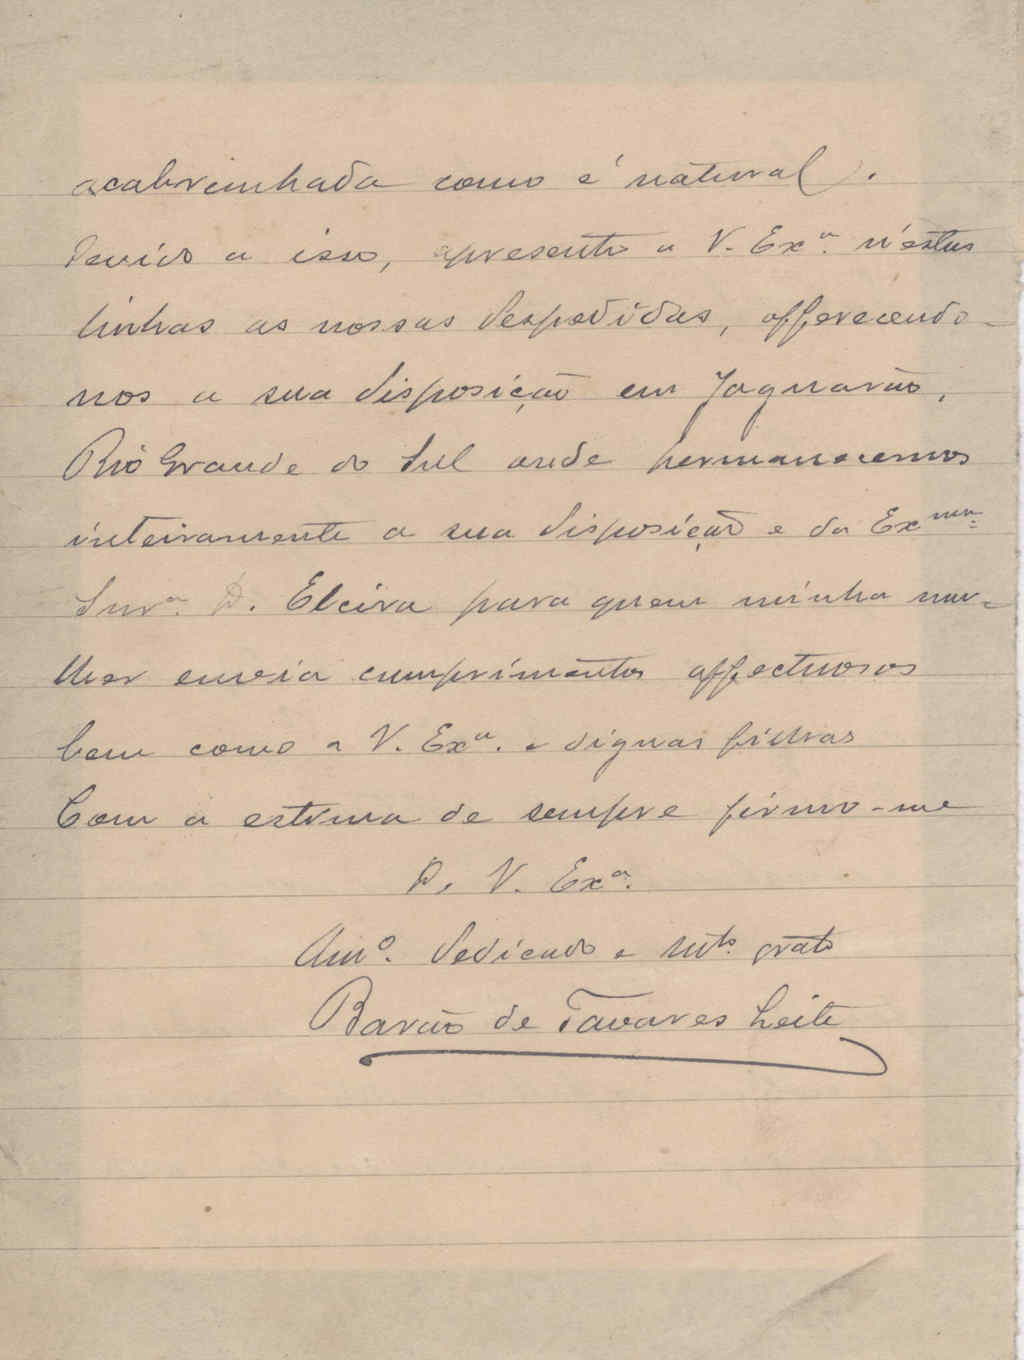 acabrunhada como é natural.
Devido a isso, apresento a V. Exª. n'estas
linhas as nossas despedidas, offerecendo-
nos a sua disposição em Jaguarão,
Rio Grande do Sul onde permanecemos
inteiramente a sua disposição e da Exᵐᵃ.
Snrª. D. Elcira para quem minha mu-
lher envia cumprimentos affectuosos
bem como a V. Exª. e dignas filhas
Com a estima de sempre firmo-me
D. V. Exª.
Amº. dedicado e mtº. grato
Barão de Tavares Leite